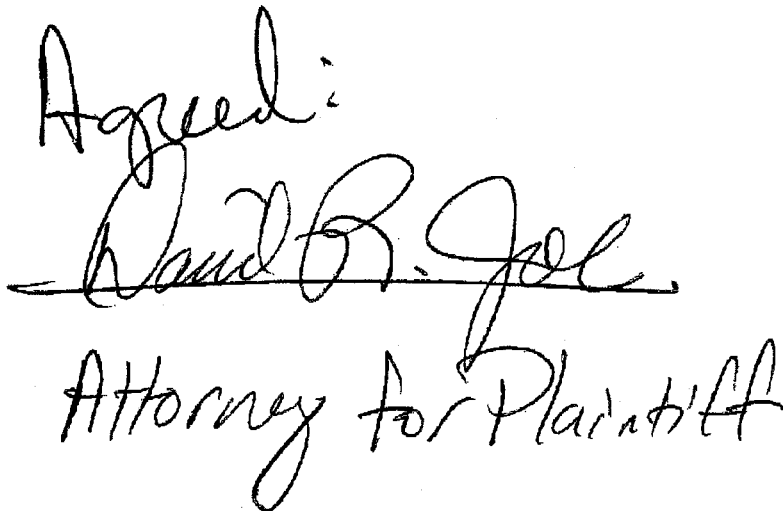 Agreed:
David R. Joe
Attorney for Plaintiff